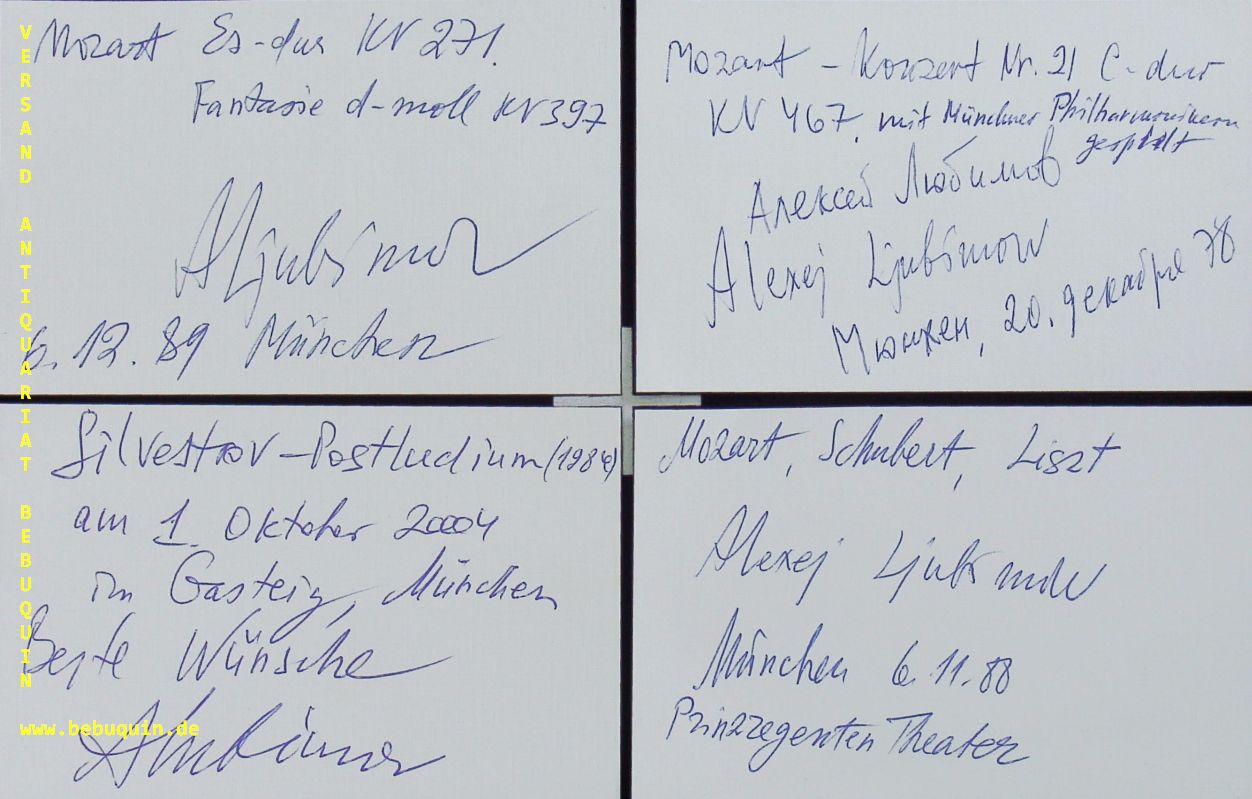 Mozart Es-dur KV 271.
Fantasie d-moll KV 397
ALjubimov
6.12.89 München
Mozart – Konzert Nr. 21 C-dur
KV 467, mit Münchner Philharmonikern
gespielt
Алексей Любимов
Alexej Ljubimow
Мюнхен, 20. декабря 78
Silvestrov – Postludium (1984)
am 1. Oktober 2004
im Gasteig, München
Beste Wünsche
Mozart, Schubert, Liszt
Alexej Ljubimow
München 6.11.88
Prinzregenten Theater
VERSAND ANTIQUARIAT BEBUQUIN
www.bebuquin.de